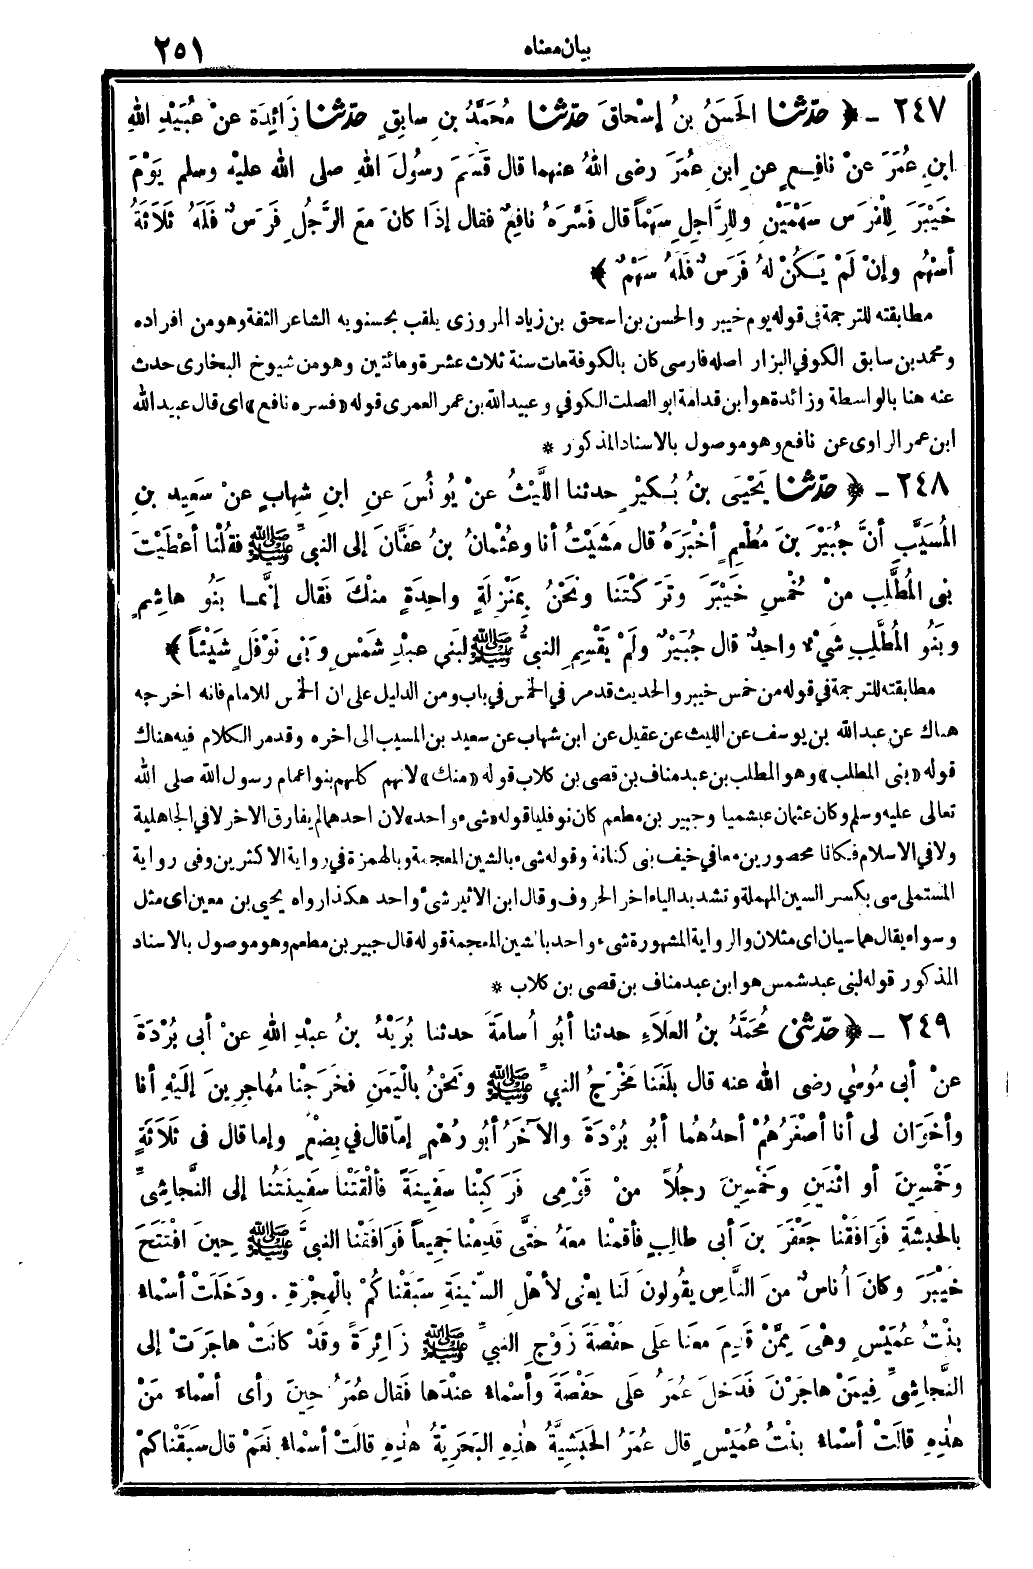 بيان معناه ٢٥١
٢٤٧ - ﴿ حدّثنا الحَسَنُ بنُ إسْحاقَ حدّثنا مُحَمَّدُ بنِ سابِقٍ حدّثنا زَائِدَة عنْ عُبَيْدِ اللهِ
ابنِ عُمَرَ عَنْ نافِعٍ عنِ ابنِ عُمَرَ رضى اللهُ عنهما قال قَسَمَ رسُولَ اللهِ صلى الله عليْه وسلم يَوْمَ
خَيْبَرَ لِلْفرَسِ سَهْمَيْنِ وللرَّاجِلِ سَهْماً قال فَسَّرَهُ نافِعٌ فقال إذَا كانَ معَ الرَّجُلِ فَرَسٌ فلَهُ ثَلاَثَةُ
أسْهُم وإنْ لَمْ يَكُنْ لهُ فَرَسٌ فلَهُ سَهْمٌ ﴾
مطابقته للترجمة فى قوله يوم خيبر والحسن بن اسحق بن زياد المروزى يلقب بحسنويه الشاعر الثقة وهو من افراده
ومحمد بن سابق الكوفي البزار اصله فارسى كان بالكوفة مات سنة ثلاث عشرة ومائتين وهو من شيوخ البخارى حدث
عنه هنا بالواسطة وزائدة هو ابن قدامة ابو الصلت الكوفي وعبيد الله بن عمر العمرى قوله «فسره نافع» اى قال عبيد الله
ابن عمر الراوى عن نافع وهو موصول بالاسناد المذكور *
٢٤٨ - ﴿ حدّثنا يَحْيَى بنُ بُكيرٍ حدثنا اللَّيْثُ عنْ يُونُسَ عنِ ابنِ شِهابٍ عنْ سَعِيدِ بنِ
المُسَيَّبِ أنَّ جُبَيْرَ بنَ مُطْعِمٍ أخْبَرَهُ قال مَشَيْتُ أنا وعُثْمانُ بنُ عَفَّانَ إلى النبيِّ ﷺ فقُلْنا أعْطَيْتَ
بنى المُطَّلِب منْ خُمْسِ خَيْبَرَ وتَرَكْتَنا ونَحْنُ بِمَنْزِلَةٍ واحِدَةٍ منْكَ فَقال إنَّما بَنُو هاشِمٍ
وبَنُو المُطَّلِبِ شَيْءٌ واحِدٌ قال جُبَيْرٌ ولَمْ يَقْسِمِ النبيُّ ﷺ لبَنى عبْدِ شَمْسٍ وبَنى نَوْفَلٍ شَيْئاً ﴾
مطابقته للترجمة في قوله من خمس خيبر والحديث قد مر في الخمس في باب ومن الدليل على ان الخمس للامام فانه اخرجه
هناك عن عبد الله بن يوسف عن الليث عن عقيل عن ابن شهاب عن سعيد بن المسيب الى اخره وقد مر الكلام فيه هناك
قوله «بنى المطلب» وهو المطلب بن عبد مناف بن قصى بن كلاب قوله «منك» لانهم كلهم بنو اعمام رسول الله صلى الله
تعالى عليه وسلم وكان عثمان عبشميا وجبير بن مطعم كان نوفليا قوله «شىء واحد» لان احدهما لم يفارق الاخر لا في الجاهلية
ولا في الاسلام فكانا محصورين معا في خيف بنى كنانة وقوله شىء بالشين المعجمة وبالهمزة في رواية الاكثرين وفى رواية
المستملى سى بكسر السين المهملة وتشديد الياء اخر الحروف وقال ابن الاثير شىء واحد هكذا رواه يحيى بن معين اى مثل
وسواء يقال هما سيان اى مثلان والرواية المشهورة شىء واحد بالشين المعجمة قوله قال جبير بن مطعم وهو موصول بالاسناد
المذكور قوله لبنى عبد شمس هو ابن عبد مناف بن قصى بن كلاب *
٢٤٩ - ﴿ حدّثنى مُحَمَّدُ بنُ العَلاَءِ حدثنا أبُو أُسامَةَ حدثنا بُرَيْدُ بنُ عبْدِ اللهِ عنْ أبى بُرْدَةَ
عنْ أبى مُوسٰي رضى الله عنه قال بلَغَنا مَخْرَجُ النبيِّ ﷺ ونَحْنُ بالْيَمَنِ فخَرَجْنا مُهاجِرِينَ إلَيْهِ أنا
وأخَوَانِ لى أنا أصْغَرُهُمْ أحدُهُما أبُو بُرْدَةَ والآخَرُ أبُو رُهْمٍ إمّا قال في بِضْعٍ وإما قال فى ثَلاَثَةٍ
وخَمْسِينَ أو اثْنَيْنِ وخَمْسِينَ رجُلاً منْ قوْمِى فَرَكِبْنا سَفِينَةً فألْقَتْنا سفِينَتُنا إلى النَّجاشِىِّ
بالحَبشَةِ فوَافَقْنا جَعْفَرَ بنَ أبى طالِبٍ فأقمْنا معَهُ حتَّى قَدِمْنا جَمِيعاً فَوَافَقْنا النبيَّ ﷺ حِينَ افْتَتَحَ
خَيْبَرَ وكانَ أُناسٌ منَ النَّاسِ يقُولونَ لَنا يعْنى لأهْلِ السّفِينةِ سبَقْناكُمْ بالْهِجْرةِ . ودخَلَتْ أسْماءُ
بِنْتُ عُمَيْسٍ وهْىَ مِمَّنْ قَدِمَ معَنا علَى حفْصَةَ زَوْجِ النبيِّ ﷺ زَائِرَةً وقدْ كانَتْ هاجَرَتْ إلى
النَّجاشىِّ فِيمَنْ هاجَرَ فَدخلَ عُمَرُ علَى حفْصَةَ وأسْماءُ عنْدَها فَقال عُمَرُ حِينَ رأى أسْماءَ مَنْ
هٰذِهِ قالَتْ أسْماءُ بِنْتُ عُمَيْسٍ قال عُمَرُ الحَبَشِيَّةُ هٰذِهِ البَحَرِيّةُ هٰذِهِ قالَتْ أسْماءُ نَعَمْ قال سَبَقْناكمْ